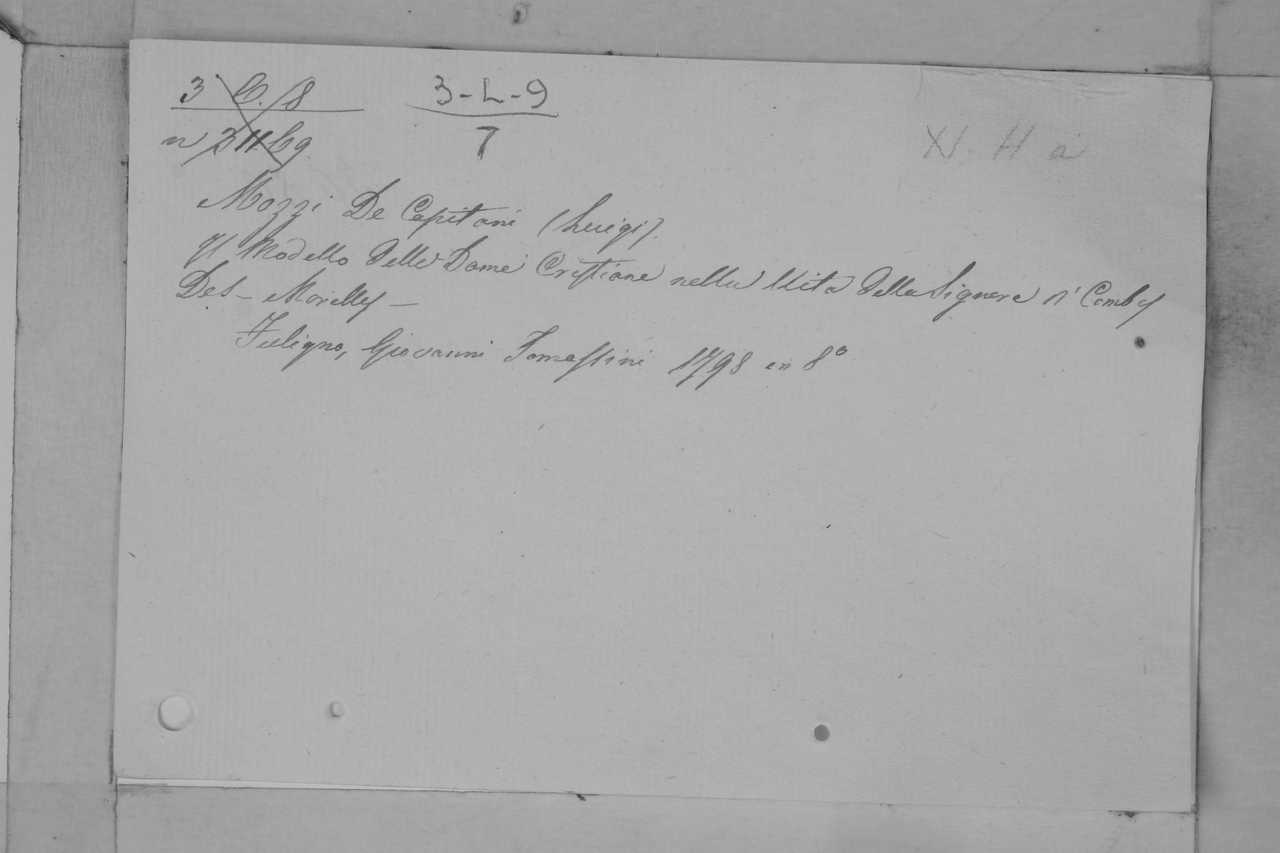 3 B. 8 3-L-9
n 7
XI. H a
Mozzi De Capitani (Luigi).
Il Modello delle Dame Cristiane nella Vita della Signora d' Combes
Des-Morelles-
Fuligno, Giovanni Tomassini 1798 in 8°